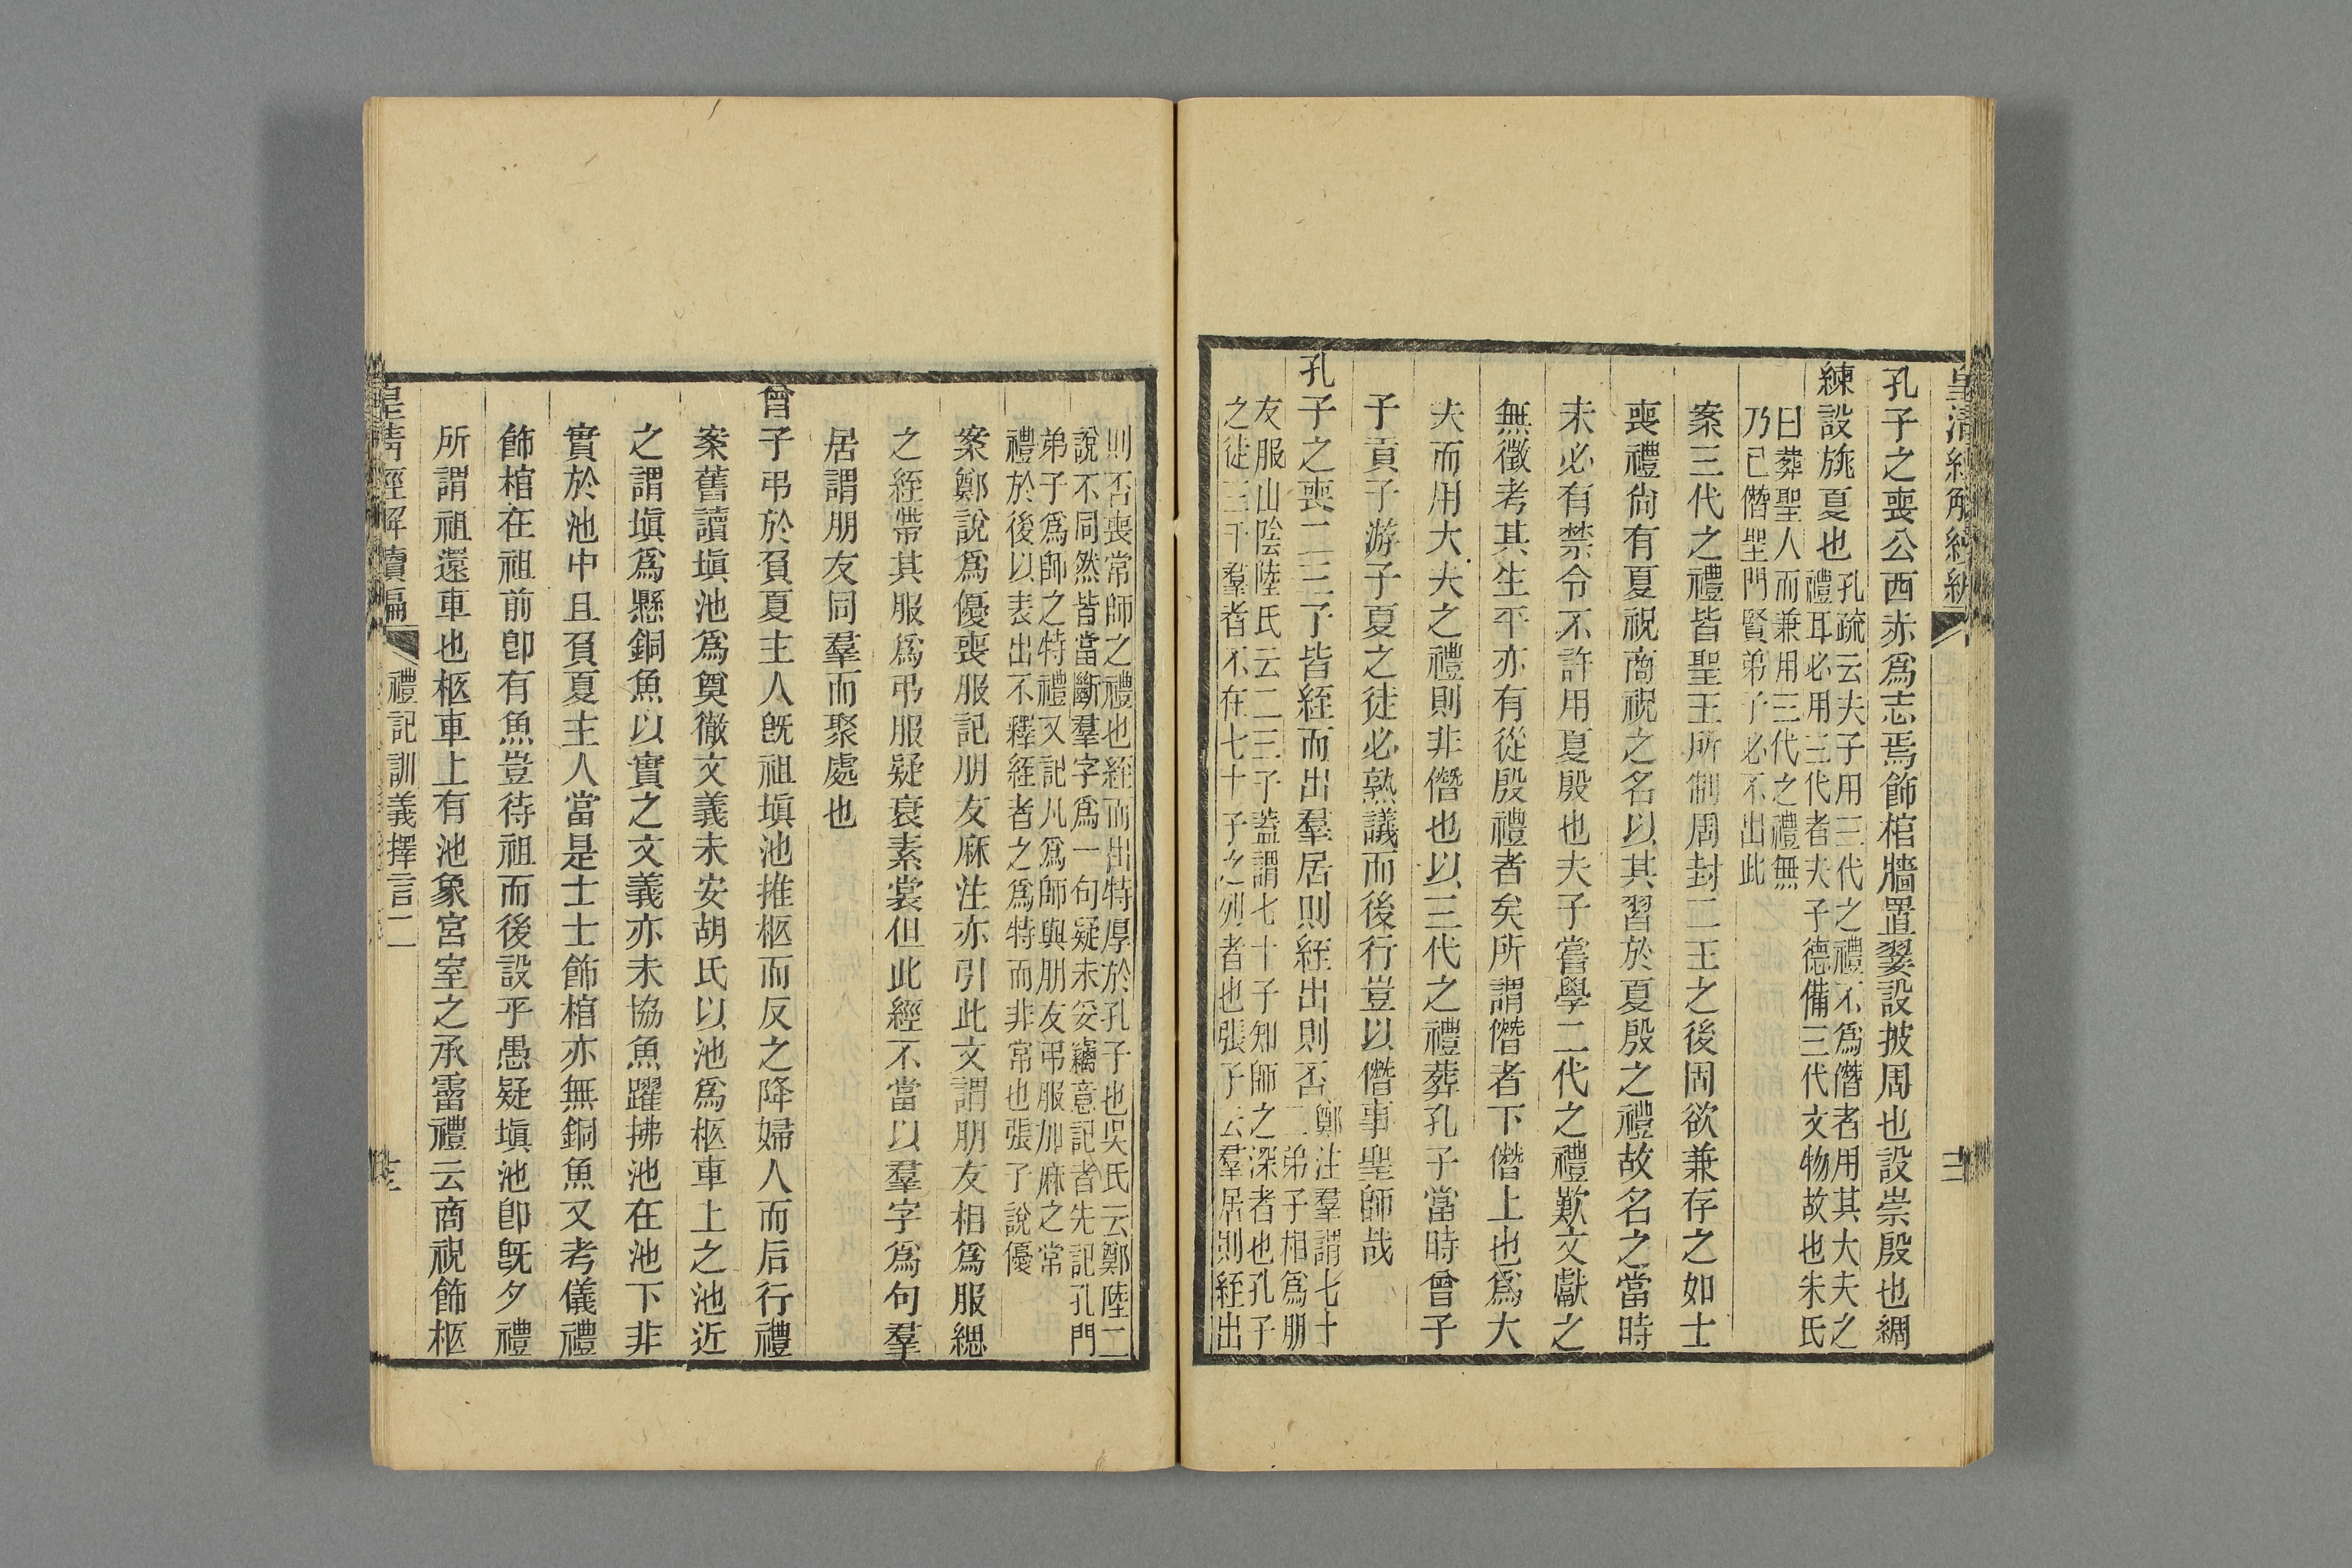 皇清經解續編
孔子之喪公西赤爲志焉飾棺牆置翣設披周也設崇殷也綢
練設旐夏也孔疏云夫子用三代之禮不爲僭者用其大夫之
禮耳必用三代者夫子德備三代文物故也朱氏
曰葬聖人而兼用三代之禮無
乃已僭聖門賢弟子必不出此
案三代之禮皆聖王所制周封二王之後固欲兼存之如士
喪禮尙有夏祝商祝之名以其習於夏殷之禮故名之當時
未必有禁令不許用夏殷也夫子嘗學二代之禮歎文獻之
無徵考其生平亦有從殷禮者矣所謂僭者下僭上也爲大
夫而用大夫之禮則非僭也以三代之禮葬孔子當時曾子
子貢子游子夏之徒必熟議而後行豈以僭事聖師哉
孔子之喪二三子皆絰而出羣居則絰出則否鄭注羣謂七十
二弟子相爲朋
友服山陰陸氏云二三子蓋謂七十子知師之深者也孔子
之徒三千羣者不在七十子之列者也張子云羣居則絰出
則否喪常師之禮也絰而出特厚於孔子也吳氏云鄭陸二
說不同然皆當斷羣字爲一句疑未妥竊意記者先記孔門
弟子爲師之特禮又記凡爲師與朋友弔服加麻之常
禮於後以表出不釋絰者之爲特而非常也張子說優
案鄭說爲優喪服記朋友麻注亦引此文謂朋友相爲服緦
之絰帶其服爲弔服疑衰素裳但此經不當以羣字爲句羣
居謂朋友同羣而聚處也
曾子弔於負夏主人旣祖塡池推柩而反之降婦人而后行禮
案舊讀塡池爲奠徹文義未安胡氏以池爲柩車上之池近
之謂塡爲懸銅魚以實之文義亦未協魚躍拂池在池下非
實於池中且負夏主人當是士士飾棺亦無銅魚又考儀禮
飾棺在祖前卽有魚豈待祖而後設乎愚疑塡池卽旣夕禮
所謂祖還車也柩車上有池象宮室之承霤禮云商祝飾柩
皇淸經解續編
禮記訓義擇言二